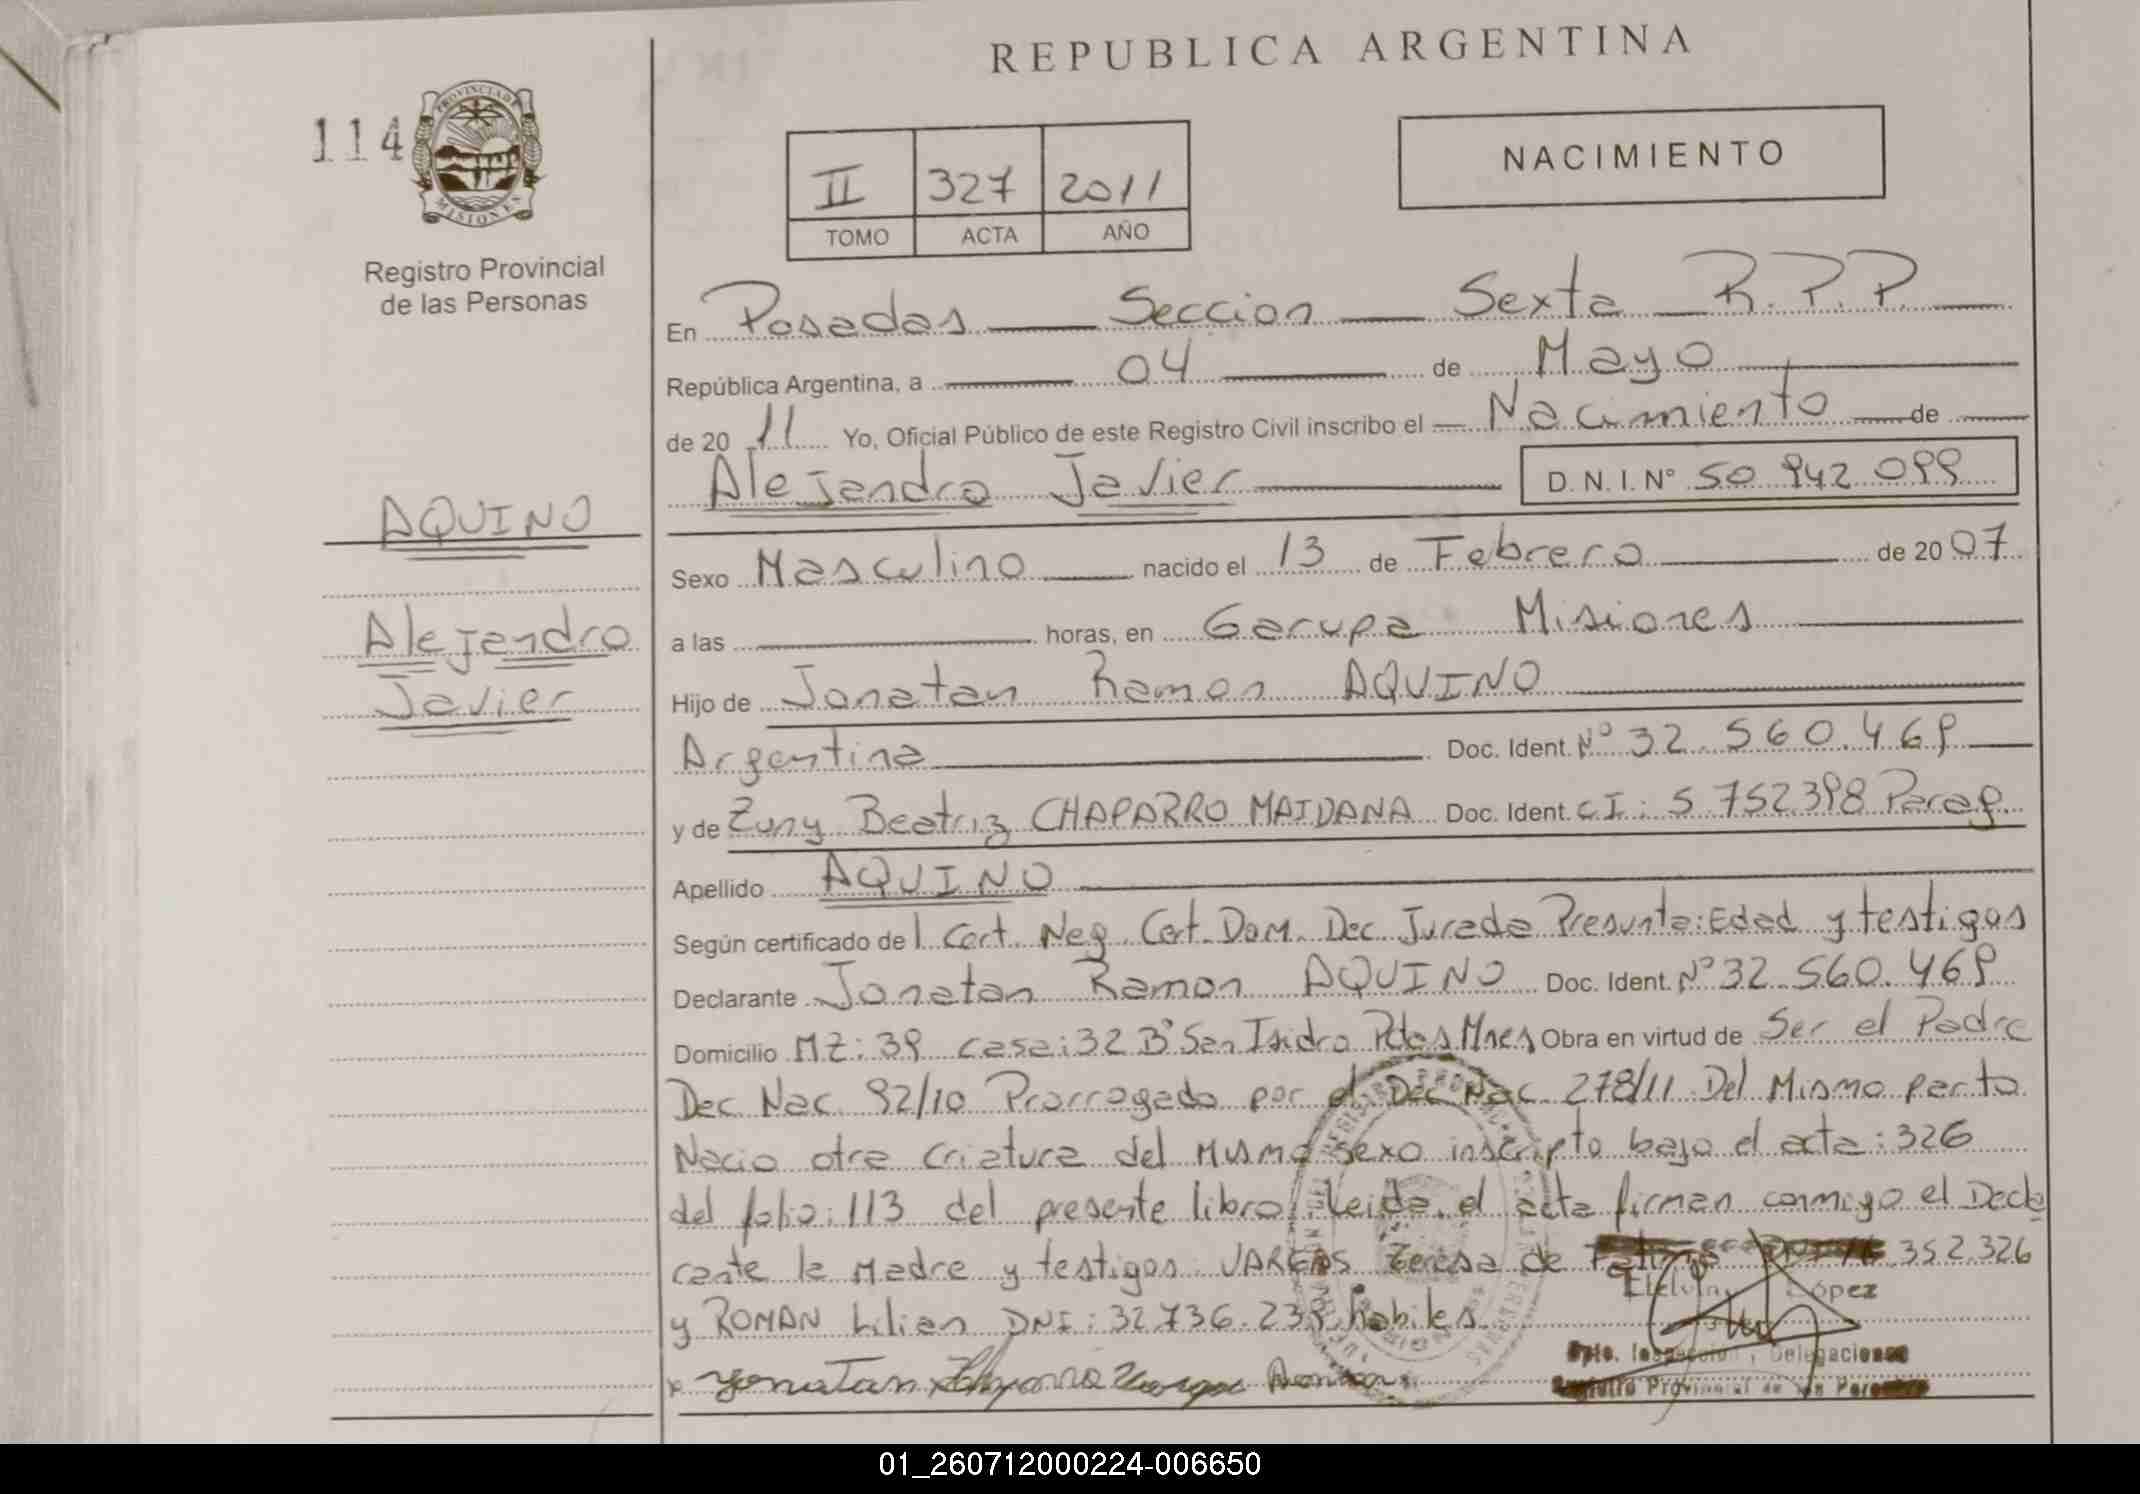 REPUBLICA ARGENTINA
114
PROVINCIA DE
MISIONES
Registro Provincial
de las Personas
II 327 2011
TOMO ACTA AÑO
NACIMIENTO
En Posadas Seccion Sexta R.P.P.
República Argentina, a 04 de Mayo
de 20 11 Yo, Oficial Público de este Registro Civil inscribo el Nacimiento de
Alejandro Javier D.N.I. Nº 50.942.099
AQUINO
Alejandro
Javier
Sexo Masculino nacido el 13 de Febrero de 2007
a las horas, en Garupa Misiones
Hijo de Jonatan Ramon AQUINO
Argentina Doc. Ident. Nº 32.560.469
y de Zuny Beatriz CHAPARRO MAIDANA Doc. Ident. CI: 5.752.398 Parag
Apellido AQUINO
Según certificado de 1 Cert. Neg. Cert. Dom. Dec. Jurada Presunta: Edad y testigos
Declarante Jonatan Ramon AQUINO Doc. Ident. Nº 32.560.469
Domicilio MZ: 39 casa: 32 Bº San Isidro Pdas Mnes Obra en virtud de Ser el Padre
Dec Nac. 92/10 Prorrogado por el Dec Nac. 278/11. Del Mismo parto
Nacio otra criatura del Mismo sexo inscripto bajo el acta: 326
del folio: 113 del presente libro. Leida el acta firman conmigo el Decla
rante la Madre y testigos: VARGAS Teresa de 352.326
y ROMAN Lilian DNI: 32.736.239 habiles.
López
Dpto. Inspección y Delegaciones
Registro Provincial de las Personas
Yonatan
01_260712000224-006650